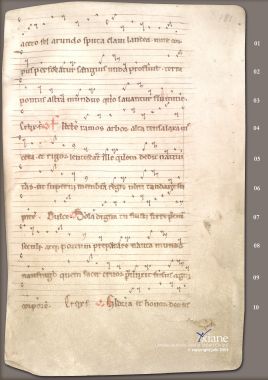 aceto fel arundo sputa claui lancea mite cor
pus perforatur sanguis unda profluit terra
pontus astra mundus quo lauantur flumine
Crux fi Flecte ramos arbor alta tensa laxa ui
scera et rigor lentescat ille quem dedit natiui
tas ut superni membra regis miti tendas sti
pite Sola digna tu fuisti ferre pretium
seculi atq; portum preparare nauta mundo
naufrago quem sacer cruor perunxit fusus agni
corpore Crux Gloria et honor deo
01
02
03
04
05
06
07
08
09
10
xiane
© copyright